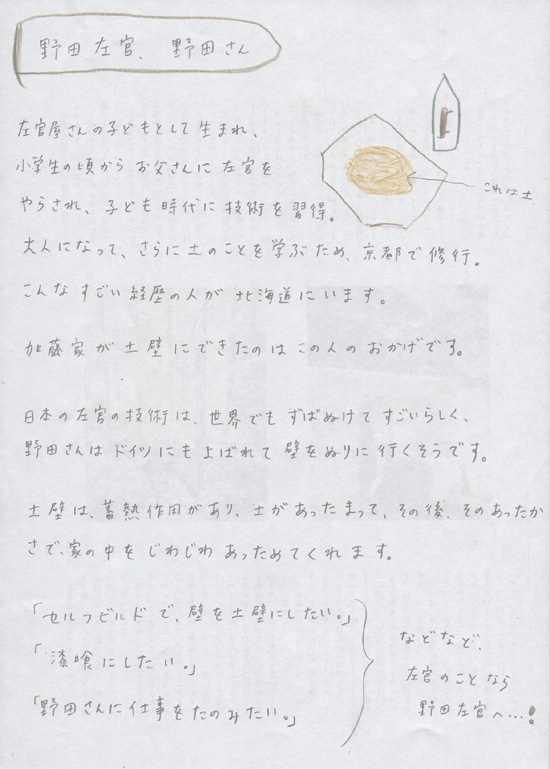 野田左官、野田さん
左官屋さんの子どもとして生まれ、
小学生の頃からお父さんに左官を
やらされ、子ども時代に技術を習得。
これは土
大人になって、さらに土のことを学ぶため、京都で修行。
こんなすごい経歴の人が北海道にいます。
加藤家が土壁にできたのはこの人のおかげです。
日本の左官の技術は、世界でもずばぬけてすごいらしく、
野田さんはドイツにもよばれて壁をぬりに行くそうです。
土壁は、蓄熱作用があり、土があったまって、その後、そのあったか
さで、家の中をじわじわあっためてくれます。
「セルフビルドで、壁を土壁にしたい。」
「漆喰にしたい。」
「野田さんに仕事をたのみたい。」
などなど、
左官のことなら
野田左官へ…!